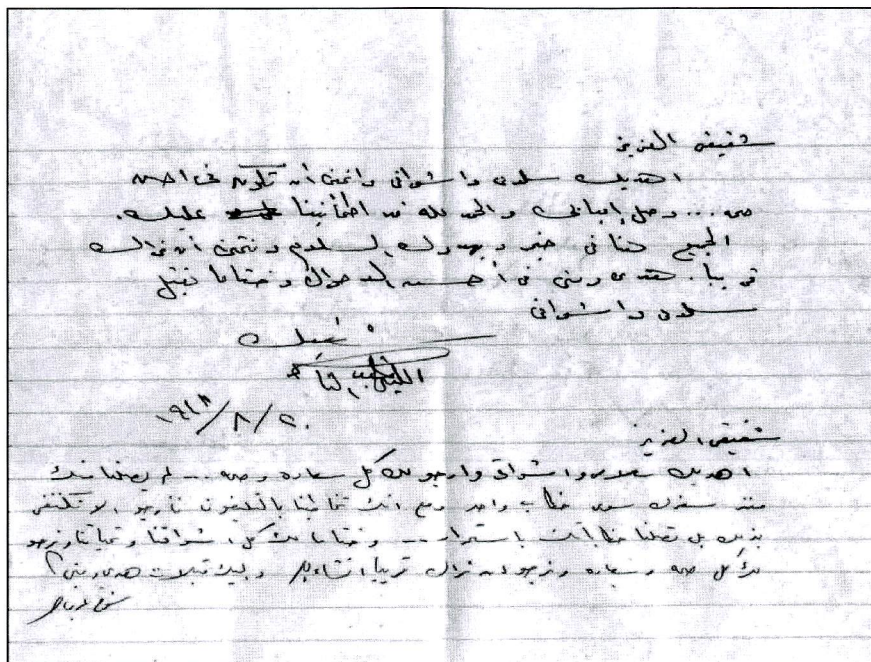 شقيقى العزيز
اهديك سلامى واشواقى واتمنى أن تكون فى احسن
صحه... وصل إلينا والحمد لله اطمأنينا عليك.
الجميع هنا فى خير ويهدوك السلام ونتمنى أن نراك
قريبا. هدى ومنى فى أحسن الاحوال وختاما تقبل
سلامى واشواقى
٢٠/٨/١٩
شقيقى العزيز
اهديك سلامى واشواقى وارجو لك كل سعاده وصحه... لم يصلنا منك
منذ سفرك سوى خطاب واحد ومع انك تخاطبنا بالتليفون نارجو الا تكتفى
بذلك بل تصلنا خطاباتك باستمرار... وختاما لك كل اشواقنا وتحياتنا ونرجو
لك كل صحه وسعاده ونرجو ان نراك قريبا انشاء الله وإليك قبلات هدى ومنى